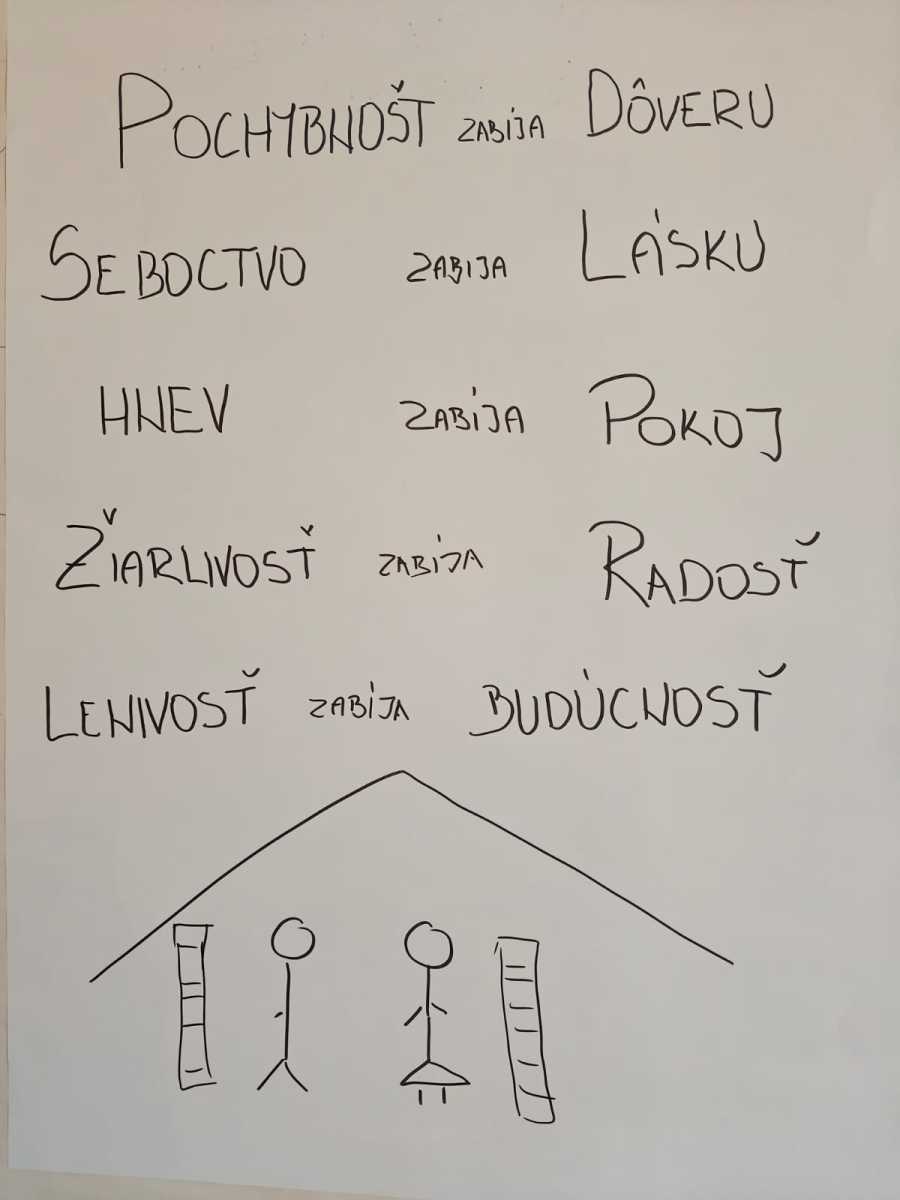 POCHYBNOŠT ZABÍJA DÔVERU
SEBOCTVO ZABIJA LÁSKU
HNEV ZABÍJA POKOJ
ŽIARLIVOSŤ ZABÍJA RADOSŤ
LENIVOSŤ ZABÍJA BUDÚCNOSŤ